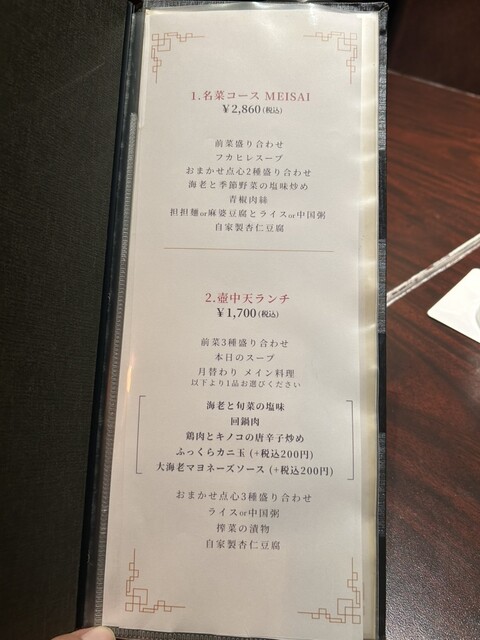 1.名菜コース MEISAI
¥2,860(税込)
前菜盛り合わせ
フカヒレスープ
おまかせ点心2種盛り合わせ
海老と季節野菜の塩味炒め
青椒肉絲
担担麺or麻婆豆腐とライスor中国粥
自家製杏仁豆腐
2.壺中天ランチ
¥1,700(税込)
前菜3種盛り合わせ
本日のスープ
月替わり メイン料理
以下より1品お選びください
海老と旬菜の塩味
回鍋肉
鶏肉とキノコの唐辛子炒め
ふっくらカニ玉 (+税込200円)
大海老マヨネーズソース (+税込200円)
おまかせ点心3種盛り合わせ
ライスor中国粥
搾菜の漬物
自家製杏仁豆腐